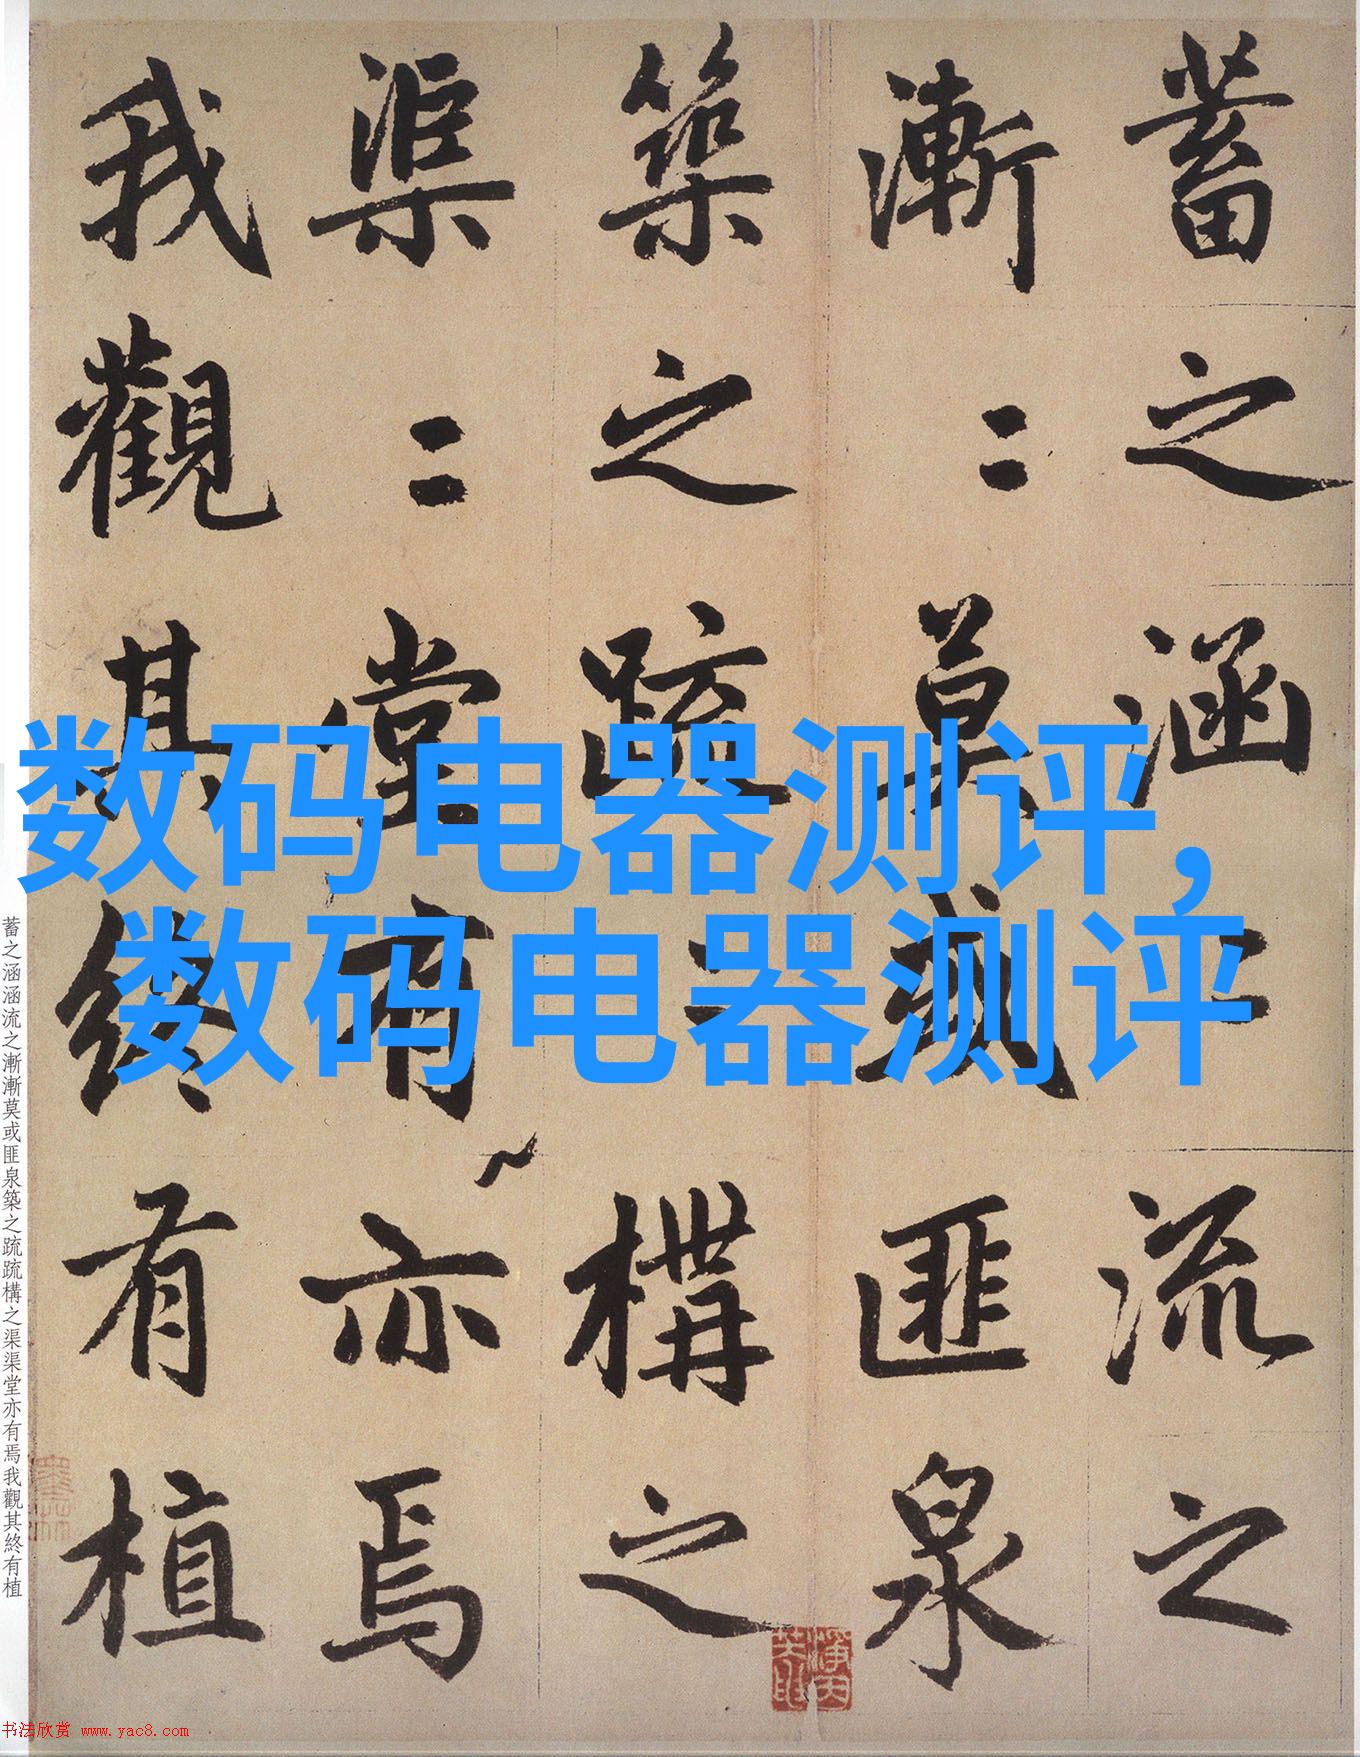 蓄之涵〻流之
漸〻莫或匪泉
築之疏〻構之
渠〻堂有亦焉
我觀其終有植
数码电器测评,
数码电器测评
蓄之涵涵流之漸漸莫或匪泉築之疏疏構之渠渠堂亦有焉我觀其終有植
书法欣赏 www.yac8.com